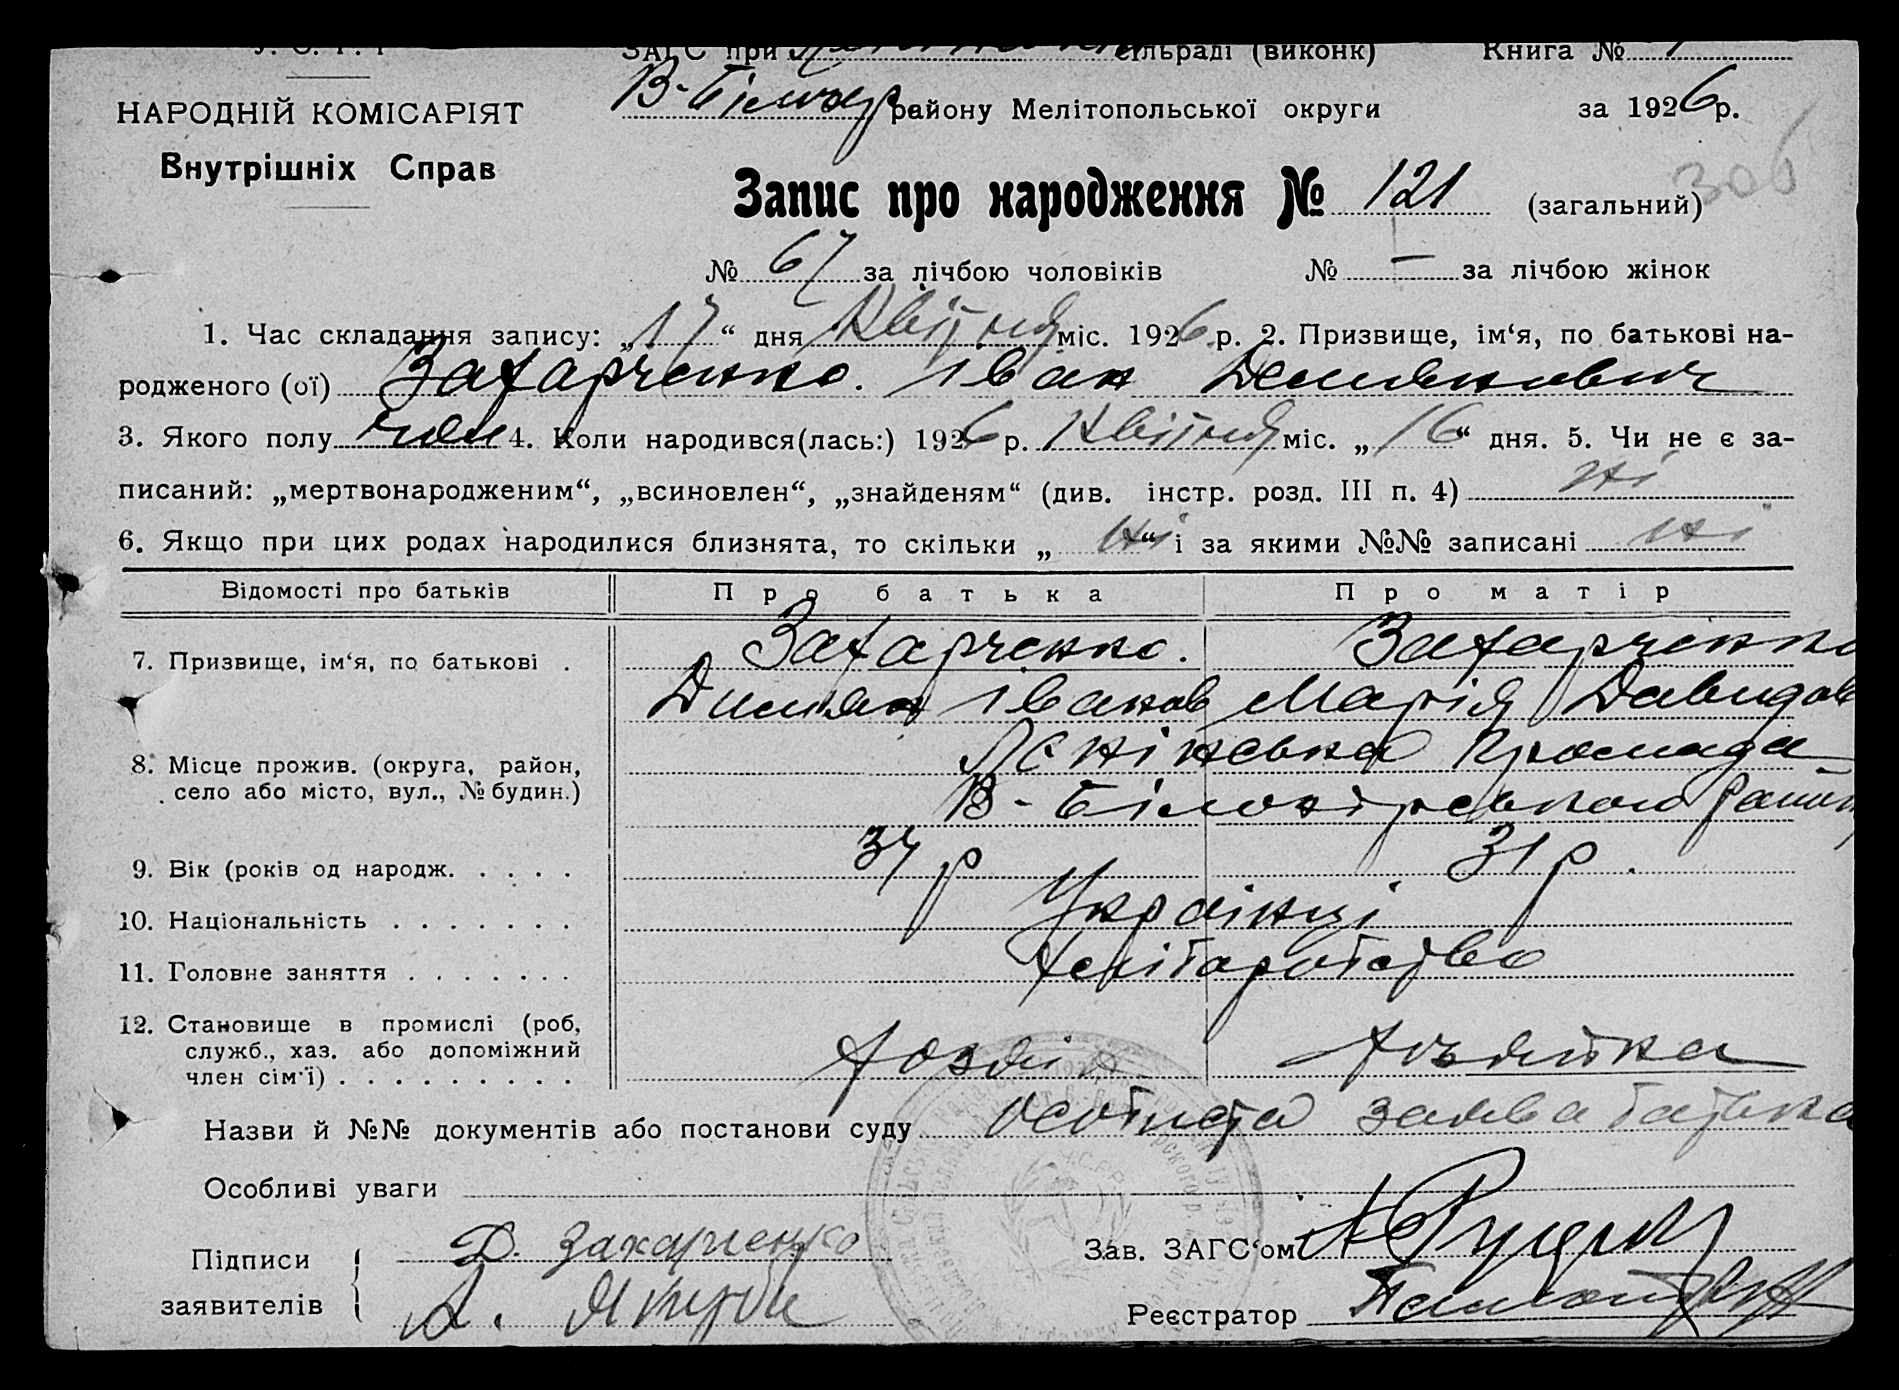 У. С. Р. Р.
ЗАГС при сільраді (виконк) Книга №
НАРОДНІЙ КОМІСАРІЯТ
району Мелітопольської округи за 1926 р.
Внутрішніх Справ
306
Запис про народження № 121 (загальний)
№ 67 за лічбою чоловіків № — за лічбою жінок
1. Час складання запису: „17“ дня Квітня міс. 1926 р. 2. Призвище, ім‘я, по батькові на-
родженого (ої) Захарченко. Іван Демянович
3. Якого полу чол 4. Коли народився(лась:) 1926 р. Квітня міс. „16“ дня. 5. Чи не є за-
писаний: „мертвонародженим“, „всиновлен“, „знайденям“ (див. інстр. розд. III п. 4) ні
6. Якщо при цих родах народилися близнята, то скільки „ні“ і за якими №№ записані ні
Відомості про батьків Про батька Про матір
7. Призвище, ім‘я, по батькові . Захарченко. Захарченко
Димян Іванов Марія Давидов
8. Місце прожив. (округа, район, Ленінська громада
село або місто, вул., № будин.) В-Білозірського
9. Вік (років од народж. . . . . 37 р 31 р.
10. Національність . . . . . . . Українці
11. Головне заняття . . . . . . . Хліборобство
12. Становище в промислі (роб,
служб., хаз. або допоміжний хозяїн хозяйка
член сім‘ї) . . . . . . . . .
Назви й №№ документів або постанови суду особиста заява батька
Особливі уваги
Підписи Д. Захарченко Зав. ЗАГС‘ом
заявителів Реєстратор